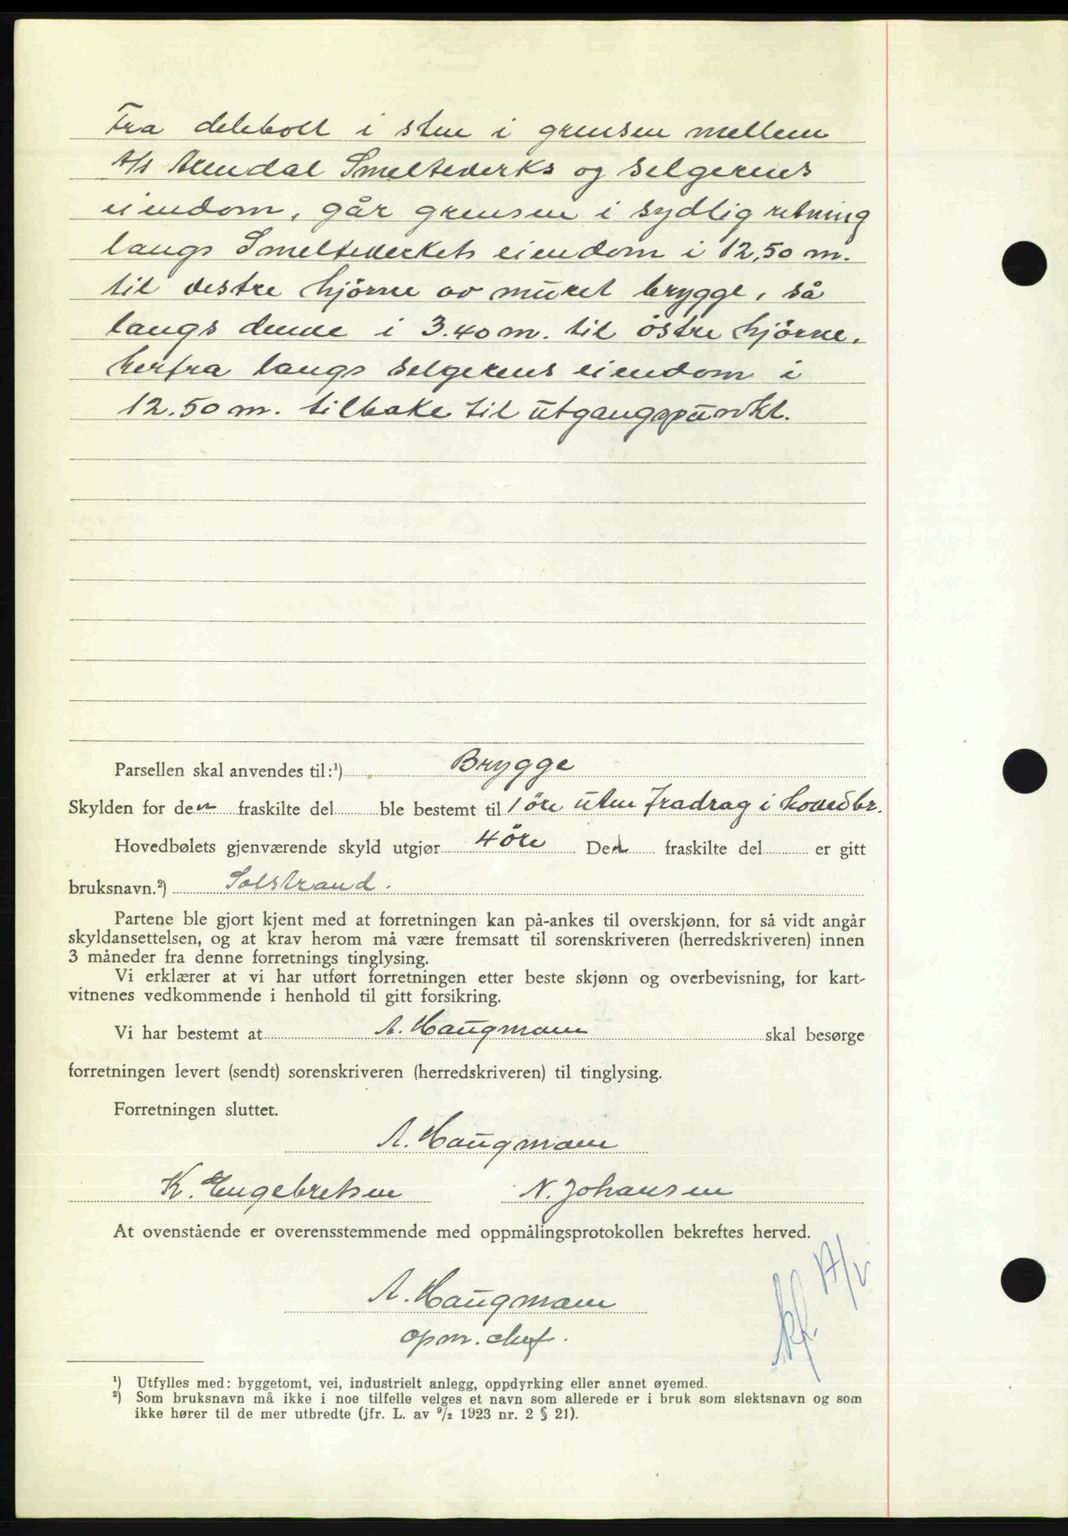 Fra delebolt i sten i grensen mellem
A/S Arendal Smelteverks og selgerens
eiendom, går grensen i sydlig retning
langs Smelteverkets eiendom i 12,50 m.
til vestre hjörne av muret brygge, så
langs denne i 3.40 m. til östre hjörne,
herfra langs selgerens eiendom i
12.50 m. tilbake til utgangspunkt.
Parsellen skal anvendes til:¹) Brygge
Skylden for den fraskilte del ble bestemt til 1 öre uten fradrag i hovedbr.
Hovedbølets gjenværende skyld utgjør 4 öre Den fraskilte del er gitt
bruksnavn.²) Solstrand.
Partene ble gjort kjent med at forretningen kan på-ankes til overskjønn, for så vidt angår
skyldansettelsen, og at krav herom må være fremsatt til sorenskriveren (herredskriveren) innen
3 måneder fra denne forretnings tinglysing.
Vi erklærer at vi har utført forretningen etter beste skjønn og overbevisning, for kart-
vitnenes vedkommende i henhold til gitt forsikring.
Vi har bestemt at A. Haugmann skal besørge
forretningen levert (sendt) sorenskriveren (herredskriveren) til tinglysing.
Forretningen sluttet.
A. Haugmann
K. Engebretsen N. Johansen
At ovenstående er overensstemmende med oppmålingsprotokollen bekreftes herved.
A. Haugmann
opm. chef.
kf.
¹) Utfylles med: byggetomt, vei, industrielt anlegg, oppdyrking eller annet øyemed.
²) Som bruksnavn må ikke i noe tilfelle velges et navn som allerede er i bruk som slektsnavn og som
ikke hører til de mer utbredte (jfr. L. av ⁹/₂ 1923 nr. 2 § 21).